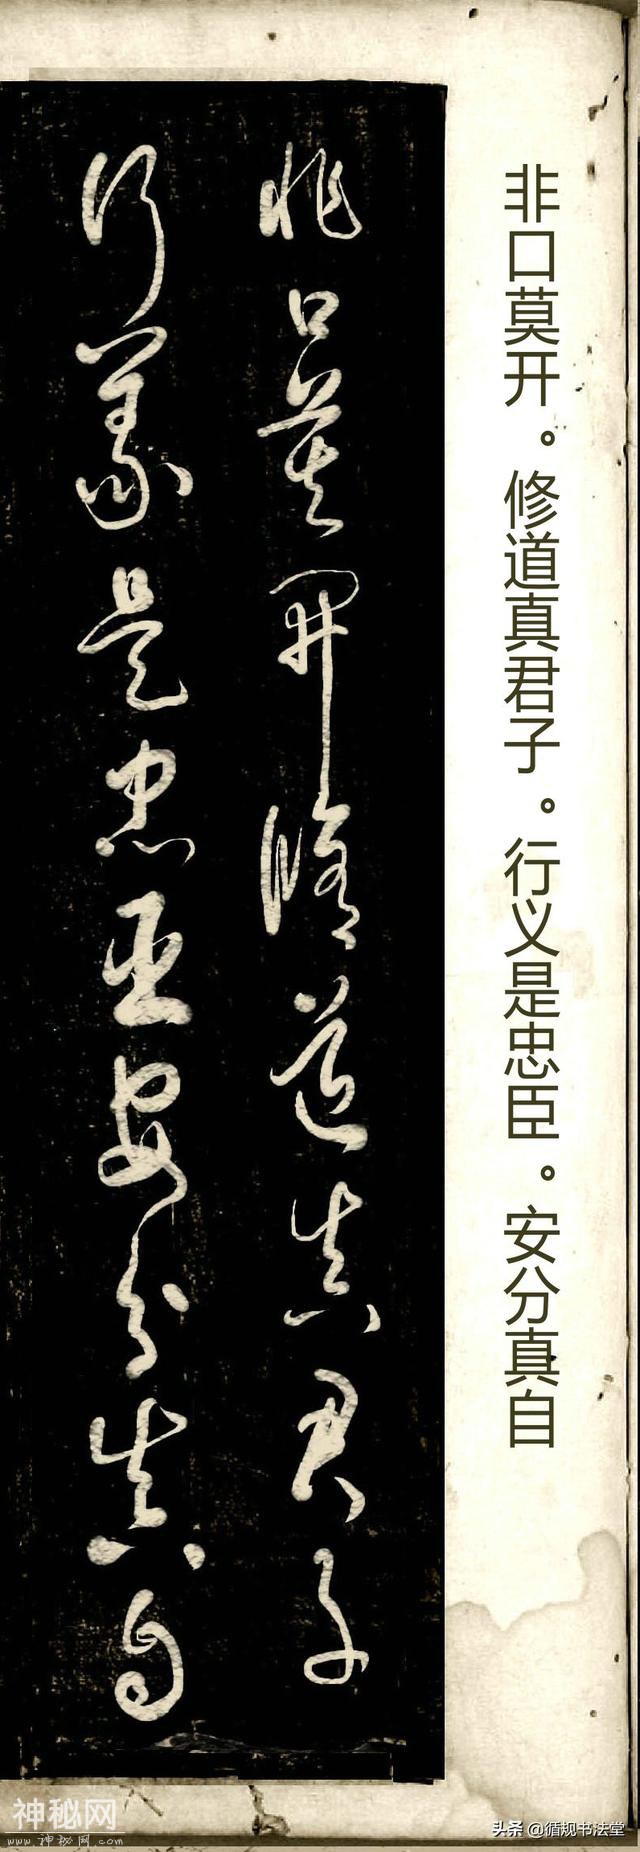 非口莫开。修道真君子。行义是忠臣。安分真自
非口莫開修道真君子
行義是忠臣安分真自
神秘网
www.神秘网.com
头条 @循规书法堂